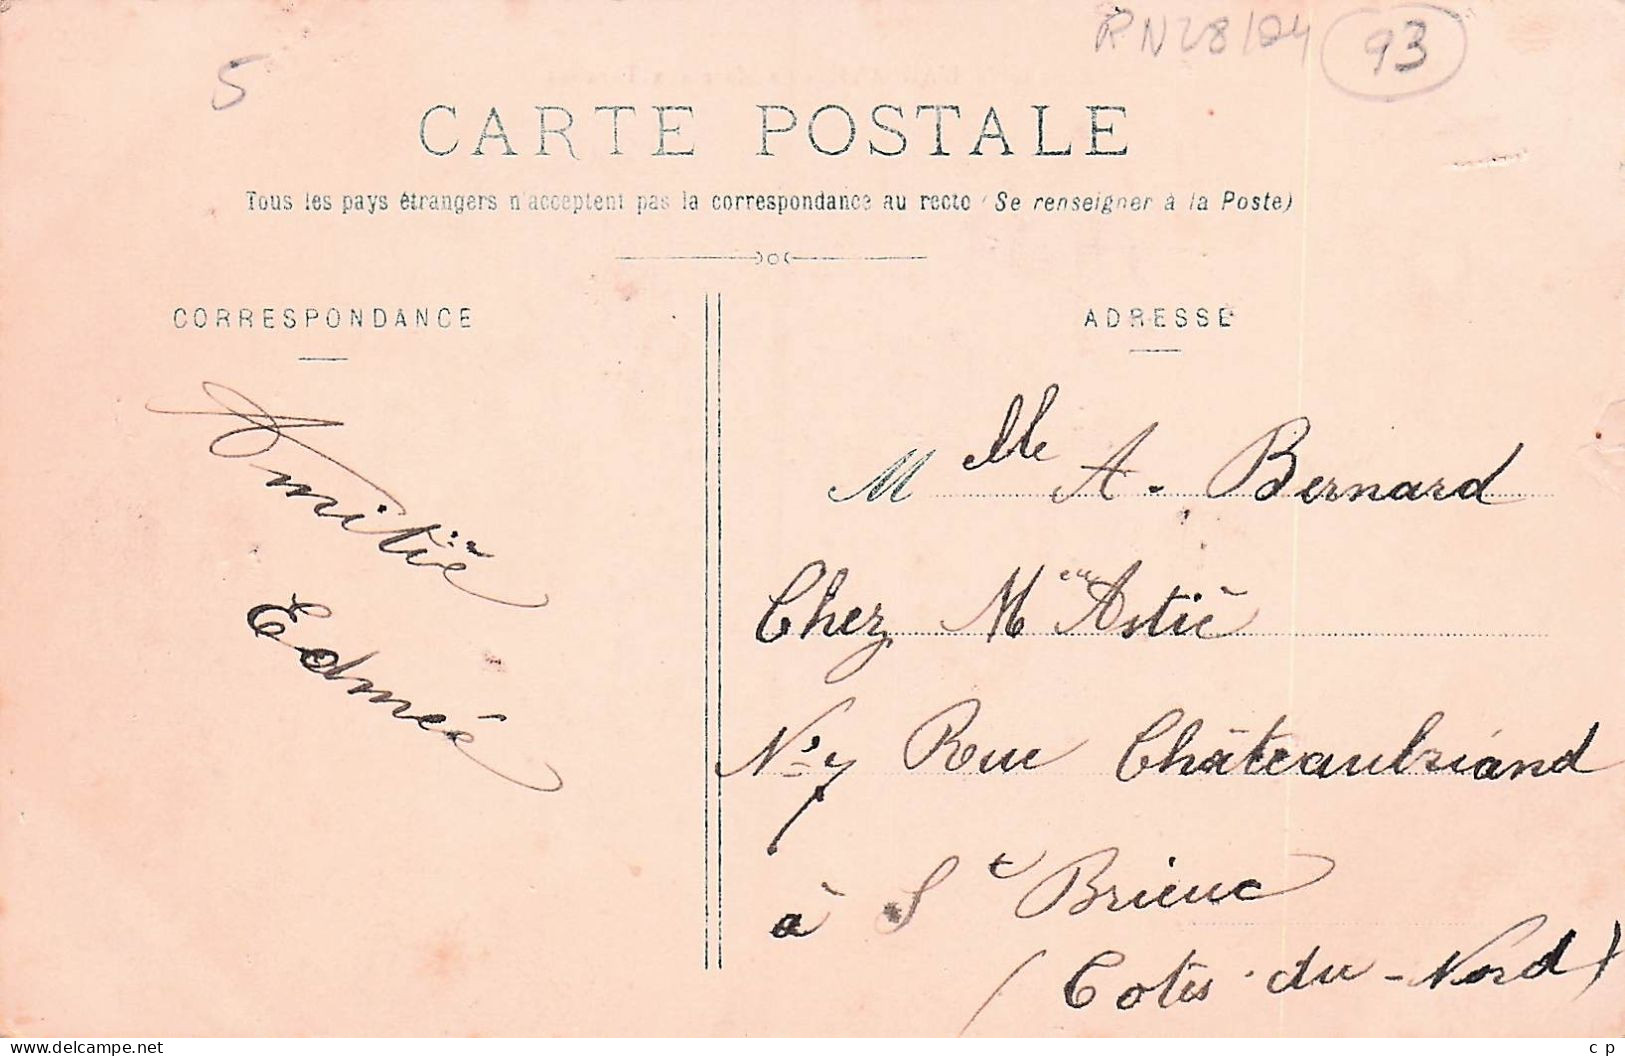 5
RN28/04 93
CARTE POSTALE
Tous les pays étrangers n'acceptent pas la correspondance au recto (Se renseigner à la Poste)
CORRESPONDANCE
Amitié
Edmée
ADRESSE
Mlle A. Bernard
Chez Mme Astié
N° 7 Rue Châteaubriand
à St Brieuc
(Cotes-du-Nord)
www.delcampe.net
c p